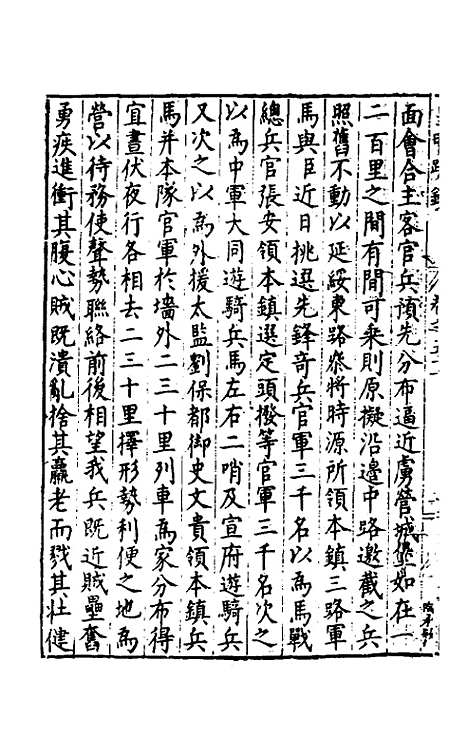 面會合主客官兵預先分布逼近虜營城堡如在一
二百里之間有間可乗則原擬沿邊中路邀截之兵
照舊不動以延綏東路叅將時源所領本鎮三路軍
馬與臣近日挑選先鋒竒兵官軍三千名以為馬戰
總兵官張安領本鎮選定頭撥等官軍三千名次之
以為中軍大同遊騎兵馬左右二哨及宣府遊騎兵
又次之以為外援太監劉保都御史文貴領本鎮兵
馬并本隊官軍於墻外二三十里列車為家分布得
宜晝伏夜行各相去二三十里擇形勢利便之地為
營以待務使聲勢聯絡前後相望我兵既近賊壘奮
勇疾進衝其腹心賊既潰亂捨其羸老而戮其壮健